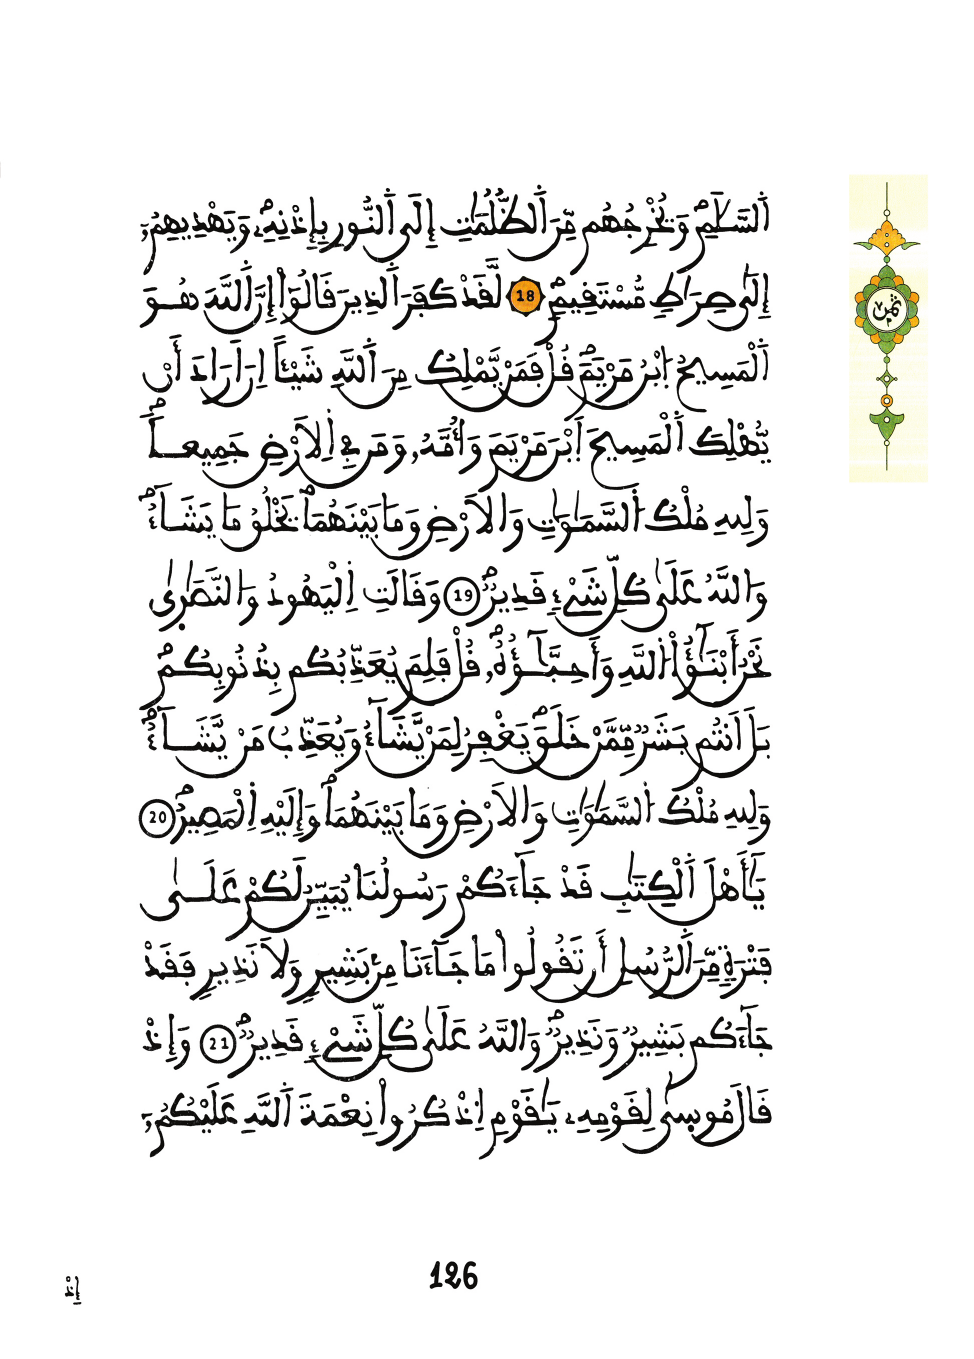 اَ۬لسَّلَٰمِ وَيُخْرِجُهُم مِّنَ اَ۬لظُّلُمَٰتِ إِلَى اَ۬لنُّورِ بِإِذْنِهِۦ وَيَهْدِيهِمُۥٓ
إِلَىٰ صِرَٰطٖ مُّسْتَقِيمٖۖ 18 لَّقَدْ كَفَرَ اَ۬لذِينَ قَالُوٓاْ إِنَّ اَ۬للَّهَ هُوَ
اَ۬لْمَسِيحُ اُ۪بْنُ مَرْيَمَۖ قُلْ فَمَنْ يَّمْلِكُ مِنَ اَ۬للَّهِ شَيْـٔاً إِنَ اَرَادَ أَنْ
يُّهْلِكَ اَ۬لْمَسِيحَ اَ۪بْنَ مَرْيَمَ وَأُمَّهُۥ وَمَن فِے اِ۬لَارْضِ جَمِيعاٗۖ
وَلِلهِ مُلْكُ اُ۬لسَّمَٰوَٰتِ وَالَارْضِ وَمَا بَيْنَهُمَاۖ يَخْلُقُ مَا يَشَآءُۖ
وَاللَّهُ عَلَىٰ كُلِّ شَےْءٖ قَدِيرٞۖ 19 وَقَالَتِ اِ۬لْيَهُودُ وَالنَّصَٰر۪ىٰ
نَحْنُ أَبْنَٰٓؤُاْ اُ۬للَّهِ وَأَحِبَّٰٓؤُهُۥۖ قُلْ فَلِمَ يُعَذِّبُكُم بِذُنُوبِكُمۖ
بَلَ اَنتُم بَشَرٞ مِّمَّنْ خَلَقَۖ يَغْفِرُ لِمَنْ يَّشَآءُ وَيُعَذِّبُ مَنْ يَّشَآءُۖ
وَلِلهِ مُلْكُ اُ۬لسَّمَٰوَٰتِ وَالَارْضِ وَمَا بَيْنَهُمَاۖ وَإِلَيْهِ اِ۬لْمَصِيرُۖ 20
يَٰٓأَهْلَ اَ۬لْكِتَٰبِ قَدْ جَآءَكُمْ رَسُولُنَا يُبَيِّنُ لَكُمْ عَلَىٰ
فَتْرَةٖ مِّنَ اَ۬لرُّسُلِ أَن تَقُولُواْ مَا جَآءَنَا مِنۢ بَشِيرٖ وَلَا نَذِيرٖ فَقَدْ
جَآءَكُم بَشِيرٞ وَنَذِيرٞۖ وَاللَّهُ عَلَىٰ كُلِّ شَےْءٖ قَدِيرٞۖ 21 وَإِذْ
قَالَ مُوس۪ىٰ لِقَوْمِهِۦ يَٰقَوْمِ اِ۟ذْكُرُواْ نِعْمَةَ اَ۬للَّهِ عَلَيْكُمُۥٓ
ثمن
126
إِذْ